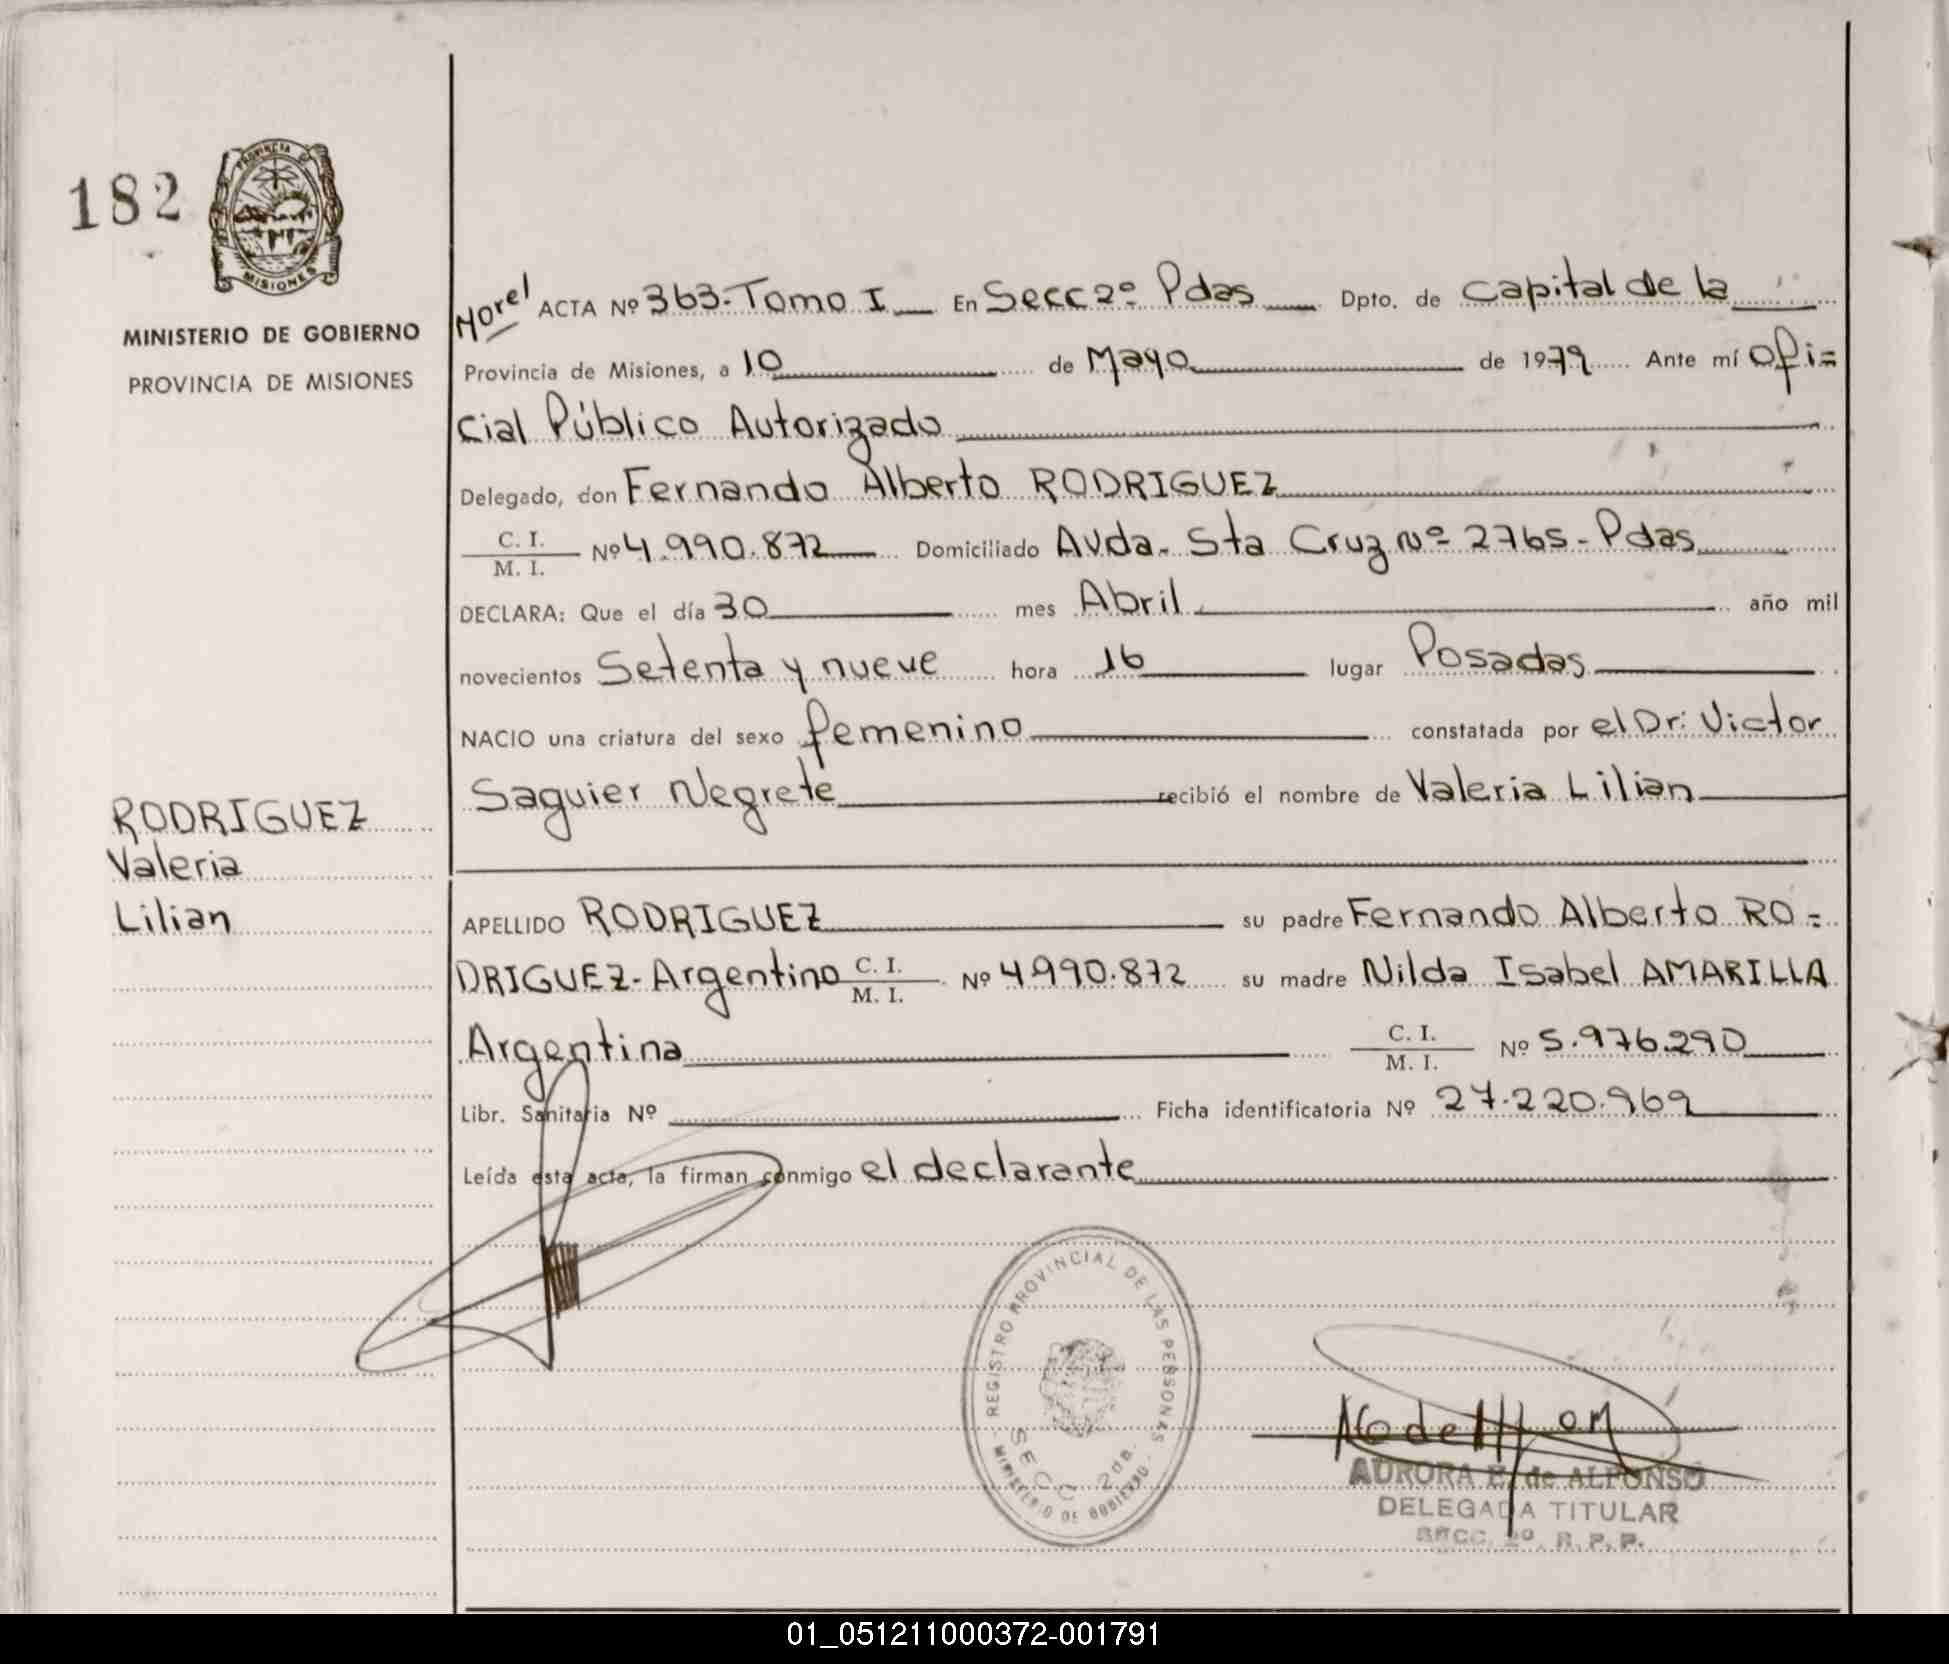 182
PROVINCIA DE
MISIONES
MINISTERIO DE GOBIERNO
PROVINCIA DE MISIONES
RODRIGUEZ
Valeria
Lilian
Morel ACTA Nº 363-Tomo I En Secc 2º Pdas Dpto. de Capital de la
Provincia de Misiones, a 10 de Mayo de 1979 Ante mí Ofi=
cial Público Autorizado
Delegado, don Fernando Alberto RODRIGUEZ
C. I.
M. I. Nº 4.990.872 Domiciliado Avda. Sta Cruz Nº 2765-Pdas
DECLARA: Que el día 30 mes Abril año mil
novecientos Setenta y nueve hora 16 lugar Posadas
NACIO una criatura del sexo femenino constatada por el Dr: Victor
Saguier Negrete recibió el nombre de Valeria Lilian
APELLIDO RODRIGUEZ su padre Fernando Alberto RO=
DRIGUEZ-Argentino C. I.
M. I. Nº 4990.872 su madre Nilda Isabel AMARILLA
Argentina C. I.
M. I. Nº 5.976.290
Libr. Sanitaria Nº Ficha identificatoria Nº 27.220.969
Leída esta acta, la firman conmigo el declarante
REGISTRO PROVINCIAL DE LAS PERSONAS
SECC. 2da.
MINISTERIO DE GOBIERNO
AURORA E. de ALFONSO
DELEGADA TITULAR
SECC. 2º. R. P. P.
01_051211000372-001791